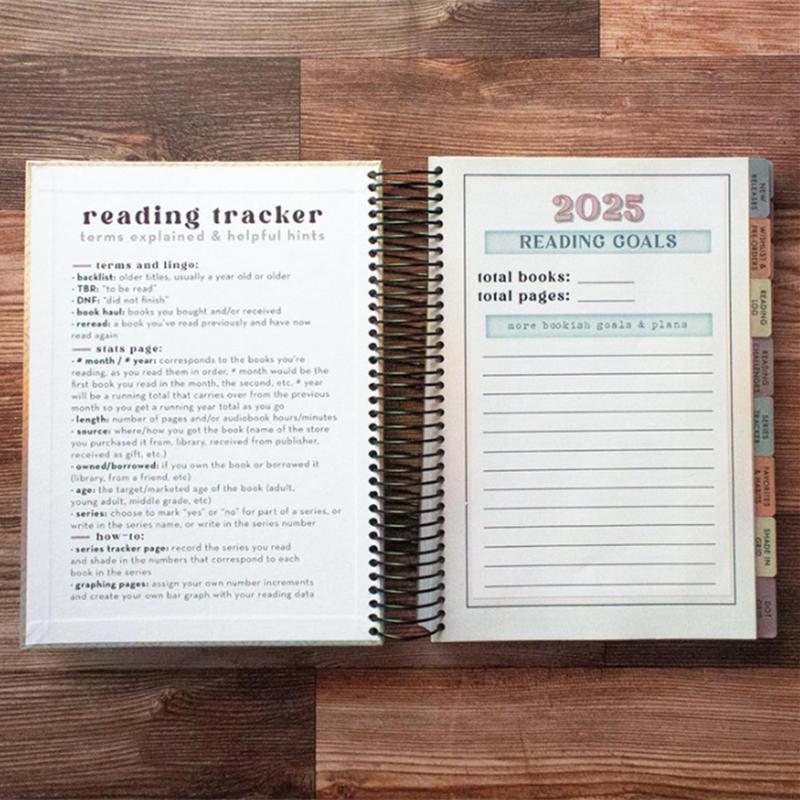 reading tracker
terms explained & helpful hints
terms and lingo:
· backlist: older titles, usually a year old or older
· TBR: "to be read"
· DNF: "did not finish"
· book haul: books you bought and/or received
· reread: a book you've read previously and have now
read again
stats page:
· # month / # year: corresponds to the books you're
reading, as you read them in order, # month would be the
first book you read in the month, the second, etc. # year
will be a running total that carries over from the previous
month so you get a running year total as you go
· length: number of pages and/or audiobook hours/minutes
· source: where/how you got the book (name of the store
you purchased it from, library, received from publisher,
received as gift, etc.)
· owned/borrowed: if you own the book or borrowed it
(library, from a friend, etc)
· age: the target/marketed age of the book (adult,
young adult, middle grade, etc)
· series: choose to mark "yes" or "no" for part of a series, or
write in the series name, or write in the series number
how-to:
· series tracker page: record the series you read
and shade in the numbers that correspond to each
book in the series
· graphing pages: assign your own number increments
and create your own bar graph with your reading data
2025
READING GOALS
total books:
total pages:
more bookish goals & plans
NEW
RELEASES
WISHLIST &
PREORDERS
READING
LOG
READING
CHALLENGES
SERIES
TRACKER
FAVORITES
& HABITS
SHADE IN
GRID
DOT
GRID